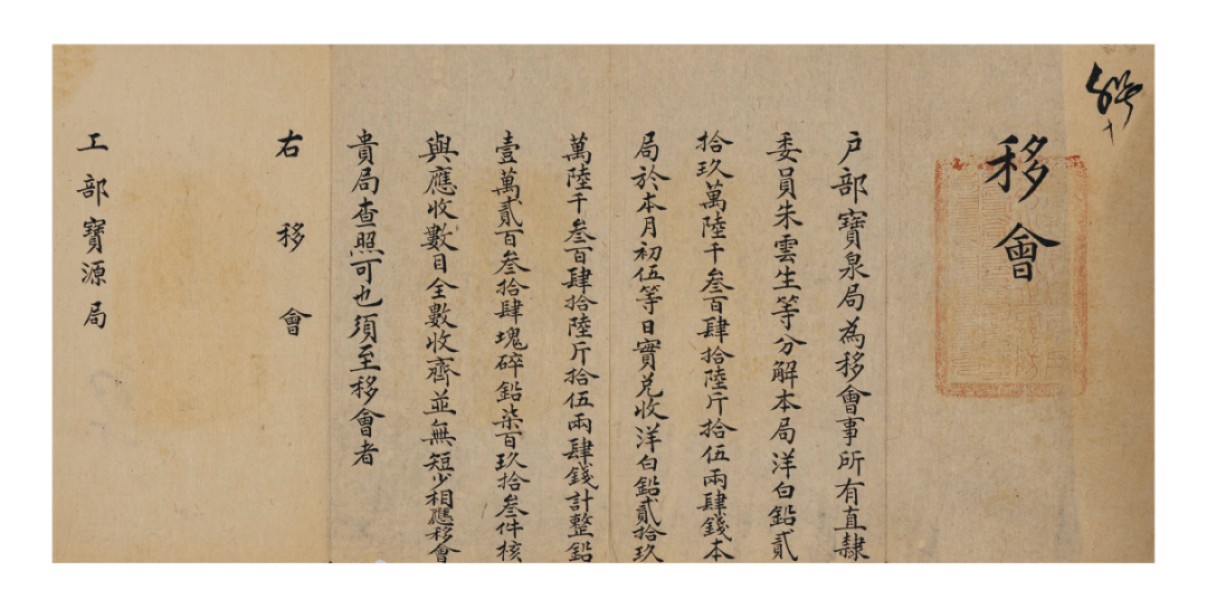 移會
户部寶泉局為移會事所有直隸
委員朱雲生等分解本局洋白鉛貳
拾玖萬陸千叁百肆拾陸斤拾伍兩肆錢本
局於本月初伍等日實兑收洋白鉛貳拾玖
萬陸千叁百肆拾陸斤拾伍兩肆錢計整鉛
壹萬貳百叁拾肆塊碎鉛柒百玖拾叁件核
與應收數目全數收齊並無短少相應移會
貴局查照可也須至移會者
右移會
工部寶源局